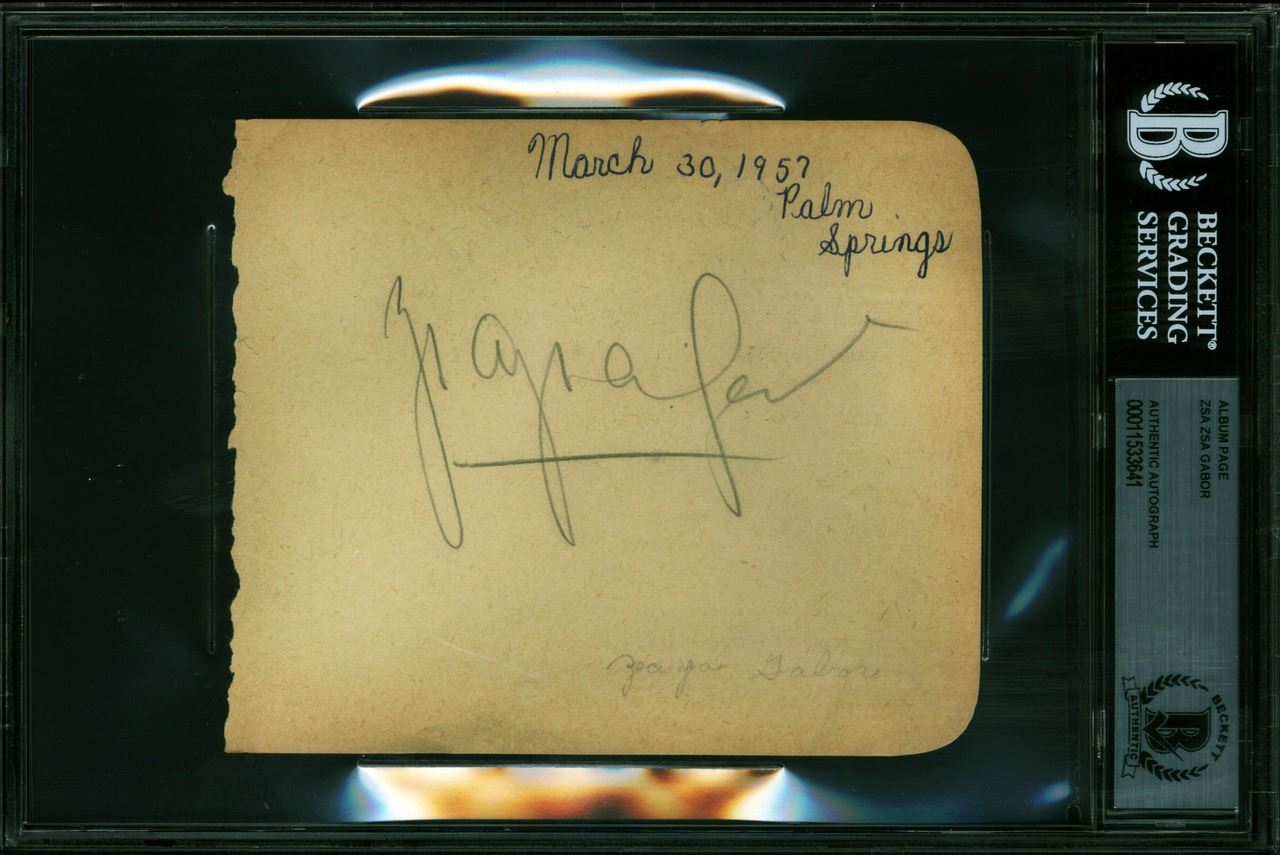 March 30, 1957
Palm
Springs
Zsa Zsa Gabor
Zsa Zsa Gabor
B
BECKETT®
GRADING
SERVICES
ALBUM PAGE
ZSA ZSA GABOR
AUTHENTIC AUTOGRAPH
00011533641
BECKETT
B
AUTHENTIC